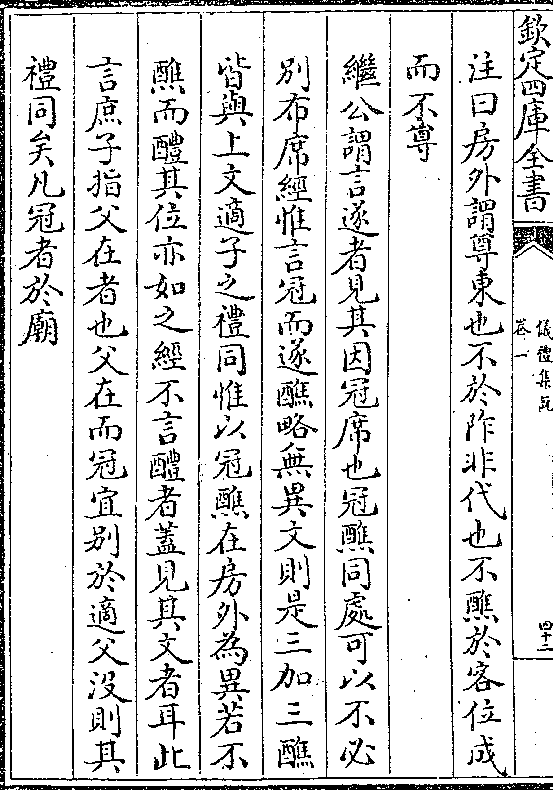 欽定四庫全書
儀禮集說
卷一
四十二
注曰房外謂尊東也不於阼非代也不醮於客位成
而不尊
繼公謂言遂者見其因冠席也冠醮同處可以不必
別布席經惟言冠而遂醮略無異文則是三加三醮
皆與上文適子之禮同惟以冠醮在房外為異若不
醮而醴其位亦如之經不言醴者蓋見其文者耳此
言庶子指父在者也父在而冠宜别於適父沒則其
禮同矣凡冠者於廟